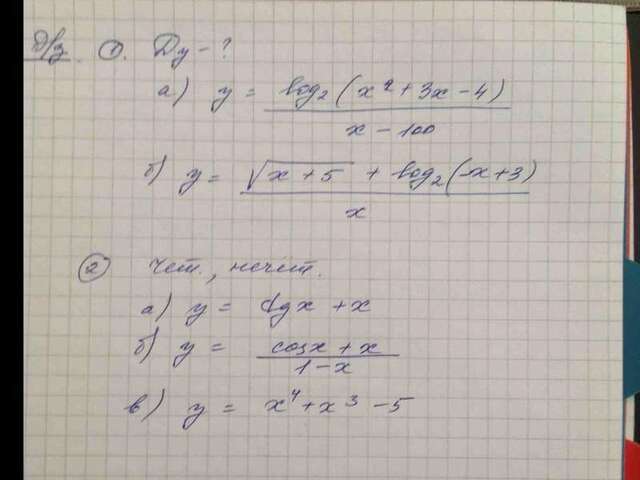 Д/з. ①. Dy - ?
а) y = log₂(x² + 3x - 4) / x - 100
б) y = √x + 5 + log₂(-x + 3) / x
② Чет., нечет.
а) y = tgx + x
б) y = cosx + x / 1 - x
в) y = x⁴ + x³ - 5